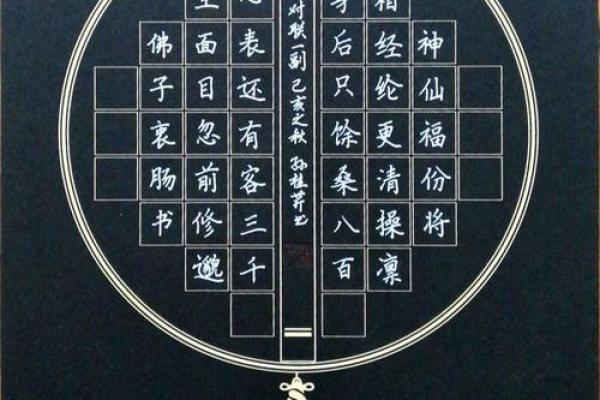 神仙福份将
相经纶更清操凛
后只馀桑八百
对联一副 己亥之秋 孙桂芹书
表还有客三千
面目忽前修邈
佛子衷肠书